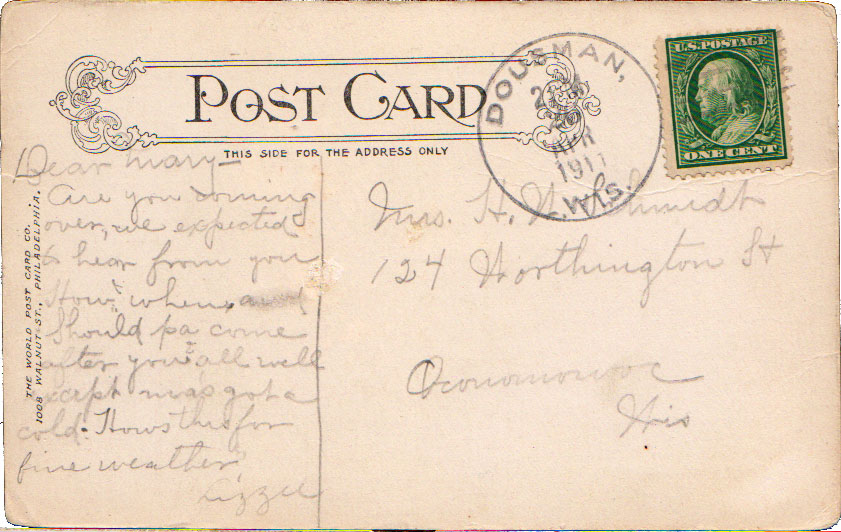 POST CARD
THIS SIDE FOR THE ADDRESS ONLY
DOUSMAN,
APR
1911
WIS.
U.S. POSTAGE
ONE CENT
THE WORLD POST CARD CO.
1008 WALNUT ST., PHILADELPHIA.
Dear Mary—
Are you coming
over, we expected
to hear from you
How, when, and
Should pa come
after you? all well
except ma's got a
cold. Hows this for
fine weather
Lizzie
Mrs. H. W. Schmidt
124 Worthington St
Oconomowoc
Wis